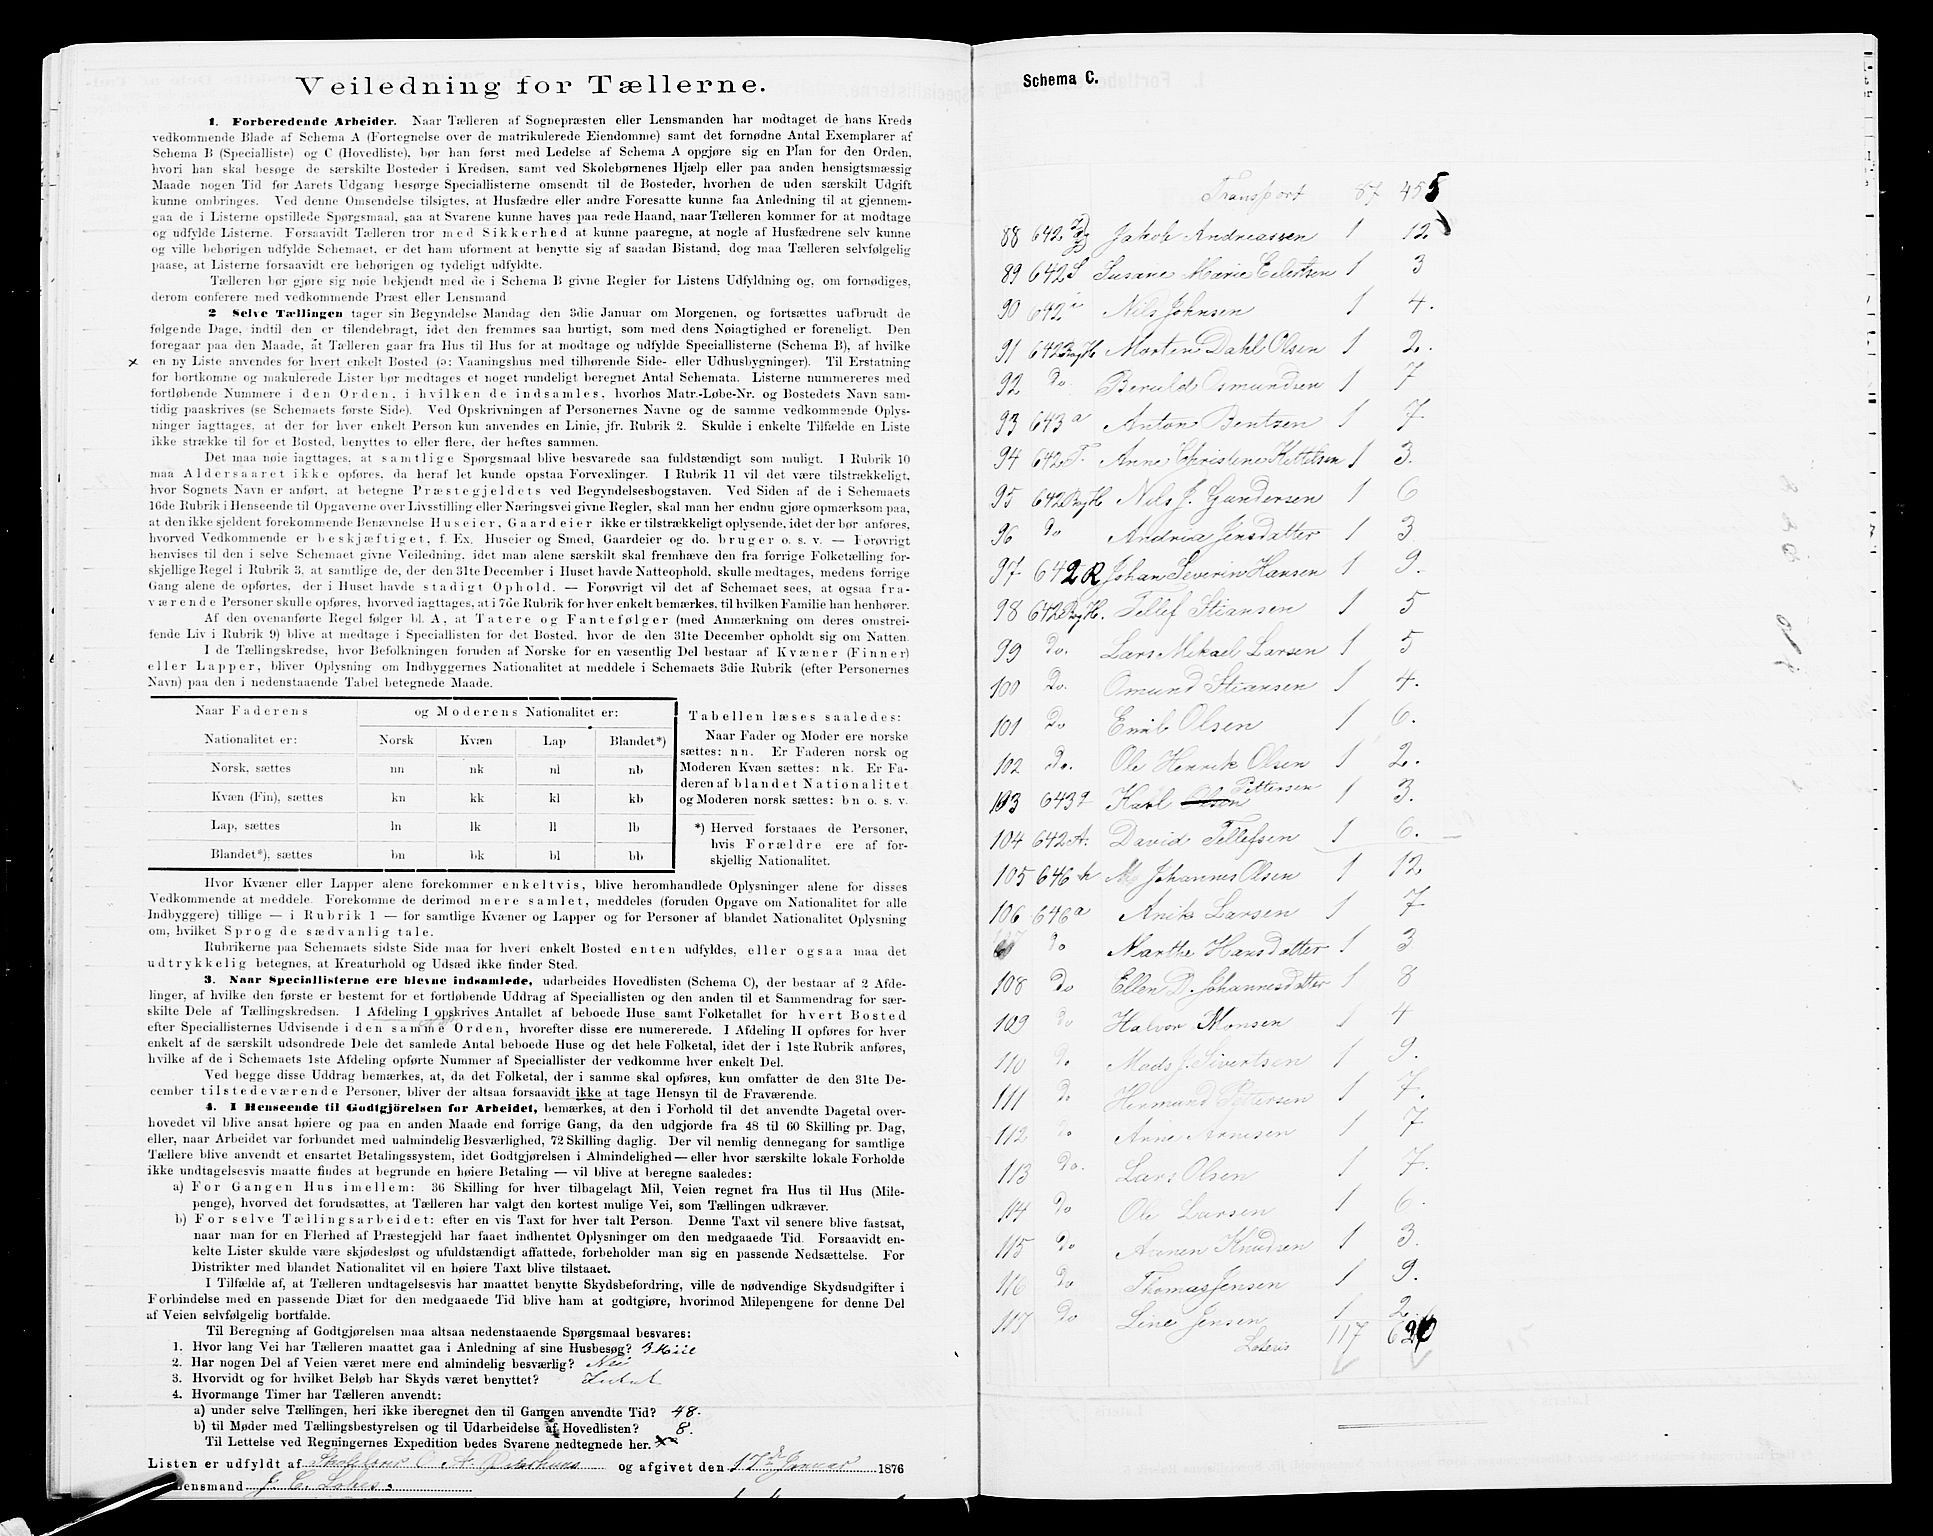 Veiledning for Tællerne.
1. Forberedende Arbeider. Naar Tælleren af Sognepræsten eller Lensmanden har modtaget de hans Kreds
vedkommende Blade af Schema A (Fortegnelse over de matrikulerede Eiendomme) samt det fornødne Antal Exemplarer af
Schema B (Specialliste) og C (Hovedliste), bør han først med Ledelse af Schema A opgjøre sig en Plan for den Orden,
hvori han skal besøge de særskilte Bosteder i Kredsen, samt ved Skolebørnenes Hjælp eller paa anden hensigtsmæssig
Maade nogen Tid før Aarets Udgang besørge Speciallisterne omsendt til de Bosteder, hvorhen de uden særskilt Udgift
kunne ombringes. Ved denne Omsendelse tilsigtes, at Husfædre eller andre Foresatte kunne faa Anledning til at gjennem-
gaa de i Listerne opstillede Spørgsmaal, saa at Svarene kunne haves paa rede Haand, naar Tælleren kommer for at modtage
og udfylde Listerne. Forsaavidt Tælleren tror med Sikkerhed at kunne paaregne, at nogle af Husfædrene selv kunne
og ville behørigen udfylde Schemaet, er det ham uforment at benytte sig af saadan Bistand, dog maa Tælleren selvfølgelig
paase, at Listerne forsaavidt ere behørigen og tydeligt udfyldte.
Tælleren bør gjøre sig nøie bekjendt med de i Schema B givne Regler for Listens Udfyldning og, om fornødiges,
derom conferere med vedkommende Præst eller Lensmand
2 Selve Tællingen tager sin Begyndelse Mandag den 3die Januar om Morgenen, og fortsættes uafbrudt de
følgende Dage, indtil den er tilendebragt, idet den fremmes saa hurtigt, som med dens Nøiagtighed er foreneligt. Den
foregaar paa den Maade, at Tælleren gaar fra Hus til Hus for at modtage og udfylde Speciallisterne (Schema B), af hvilke
x en ny Liste anvendes for hvert enkelt Bosted (ɔ: Vaaningshus med tilhørende Side- eller Udhusbygninger). Til Erstatning
for bortkomne og makulerede Lister bør medtages et noget rundeligt beregnet Antal Schemata. Listerne nummereres med
fortløbende Nummere i den Orden, i hvilken de indsamles, hvorhos Matr.-Løbe-Nr. og Bostedets Navn sam-
tidig paaskrives (se Schemaets første Side). Ved Opskrivningen af Personernes Navne og de samme vedkommende Oplys-
ninger iagttages, at der for hver enkelt Person kun anvendes en Linie, jfr. Rubrik 2. Skulde i enkelte Tilfælde en Liste
ikke strække til for et Bosted, benyttes to eller flere, der heftes sammen.
Det maa nøie iagttages, at samtlige Spørgsmaal blive besvarede saa fuldstændigt som muligt. I Rubrik 10
maa Aldersaaret ikke opføres, da heraf let kunde opstaa Forvexlinger. I Rubrik 11 vil det være tilstrækkeligt,
hvor Sognets Navn er anført, at betegne Præstegjeldets ved Begyndelsesbogstaven. Ved Siden af de i Schemaets
16de Rubrik i Henseende til Opgaverne over Livsstilling eller Næringsvei givne Regler, skal man her endnu gjøre opmærksom paa,
at den ikke sjeldent forekommende Benævnelse Huseier, Gaardeier ikke er tilstrækkeligt oplysende, idet der bør anføres,
hvorved Vedkommende er beskjæftiget, f. Ex. Huseier og Smed, Gaardeier og do. bruger o. s. v. — Forøvrigt
henvises til den i selve Schemaet givne Veiledning, idet man alene særskilt skal fremhæve den fra forrige Folketælling for-
skjellige Regel i Rubrik 3, at samtlige de, der den 31te December i Huset havde Natteophold, skulle medtages, medens forrige
Gang alene de opførtes, der i Huset havde stadigt Ophold. — Forøvrigt vil det af Schemaet sees, at ogsaa fra-
værende Personer skulle opføres, hvorved iagttages, at i 7de Rubrik for hver enkelt bemærkes, til hvilken Familie han henhører.
Af den ovenanførte Regel følger bl. A, at Tatere og Fantefølger (med Anmærkning om deres omstrei-
fende Liv i Rubrik 9) blive at medtage i Speciallisten for det Bosted, hvor de den 31te December opholdt sig om Natten.
I de Tællingskredse, hvor Befolkningen foruden af Norske for en væsentlig Del bestaar af Kvæner (Finner)
eller Lapper, bliver Oplysning om Indbyggernes Nationalitet at meddele i Schemaets 3die Rubrik (efter Personernes
Navn) paa den i nedenstaaende Tabel betegnede Maade.
Naar Faderens og Moderens Nationalitet er:
Nationalitet er: Norsk Kvæn Lap Blandet*)
Norsk, sættes nn nk nl nb
Kvæn (Fin), sættes kn kk kl kb
Lap, sættes ln lk ll lb
Blandet*), sættes bn bk bl bb
Tabellen læses saaledes:
Naar Fader og Moder ere norske
sættes: nn. Er Faderen norsk og
Moderen Kvæn sættes: nk. Er Fa-
deren af blandet Nationalitet
og Moderen norsk sættes: bn o. s. v.
*) Herved forstaaes de Personer,
hvis Forældre ere af for-
skjellig Nationalitet.
Hvor Kvæner eller Lapper alene forekommer enkeltvis, blive heromhandlede Oplysninger alene for disses
Vedkommende at meddele. Forekomme de derimod mere samlet, meddeles (foruden Opgave om Nationalitet for alle
Indbyggere) tillige — i Rubrik 1 — for samtlige Kvæner og Lapper og for Personer af blandet Nationalitet Oplysning
om, hvilket Sprog de sædvanlig tale.
Rubrikerne paa Schemaets sidste Side maa for hvert enkelt Bosted enten udfyldes, eller ogsaa maa det
udtrykkelig betegnes, at Kreaturhold og Udsæd ikke finder Sted.
3. Naar Speciallisterne ere blevne indsamlede, udarbeides Hovedlisten (Schema C), der bestaar af 2 Afde-
linger, af hvilke den første er bestemt for et fortløbende Uddrag af Speciallisten og den anden til et Sammendrag for sær-
skilte Dele af Tællingskredsen. I Afdeling I opskrives Antallet af beboede Huse samt Folketallet for hvert Bosted
efter Speciallisternes Udvisende i den samme Orden, hvorefter disse ere numererede. I Afdeling II opføres for hver
enkelt af de særskilt udsondrede Dele det samlede Antal beboede Huse og det hele Folketal, idet der i 1ste Rubrik anføres,
hvilke af de i Schemaets 1ste Afdeling opførte Nummer af Speciallister der vedkomme hver enkelt Del.
Ved begge disse Uddrag bemærkes, at, da det Folketal, der i samme skal opføres, kun omfatter de den 31te De-
cember tilstedeværende Personer, bliver der altsaa forsaavidt ikke at tage Hensyn til de Fraværende.
4. I Henseende til Godtgjörelsen for Arbeidet, bemærkes, at den i Forhold til det anvendte Dagetal over-
hovedet vil blive ansat høiere og paa en anden Maade end forrige Gang, da den udgjorde fra 48 til 60 Skilling pr. Dag,
eller, naar Arbeidet var forbundet med ualmindelig Besværlighed, 72 Skilling daglig. Der vil nemlig dennegang for samtlige
Tællere blive anvendt et ensartet Betalingssystem, idet Godtgjørelsen i Almindelighed — eller hvor særskilte lokale Forholde
ikke undtagelsesvis maatte findes at begrunde en høiere Betaling — vil blive at beregne saaledes:
a) For Gangen Hus imellem: 36 Skilling for hver tilbagelagt Mil, Veien regnet fra Hus til Hus (Mile-
penge), hvorved det forudsættes, at Tælleren har valgt den kortest mulige Vei, som Tællingen udkræver.
b) For selve Tællingsarbeidet: efter en vis Taxt for hver talt Person. Denne Taxt vil senere blive fastsat,
naar man for en Flerhed af Præstegjeld har faaet indhentet Oplysninger om den medgaaede Tid. Forsaavidt en-
kelte Lister skulde være skjødesløst og ufuldstændigt affattede, forbeholder man sig en passende Nedsættelse. For
Distrikter med blandet Nationalitet vil en høiere Taxt blive tilstaaet.
I Tilfælde af, at Tælleren undtagelsesvis har maattet benytte Skydsbefordring, ville de nødvendige Skydsudgifter i
Forbindelse med en passende Diæt for den medgaaede Tid blive ham at godtgjøre, hvorimod Milepengene for denne Del
af Veien selvfølgelig bortfalde.
Til Beregning af Godtgjørelsen maa altsaa nedenstaaende Spørgsmaal besvares:
1. Hvor lang Vei har Tælleren maattet gaa i Anledning af sine Husbesøg? 3 Miil
2. Har nogen Del af Veien været mere end almindelig besværlig? Nei
3. Hvorvidt og for hvilket Beløb har Skyds været benyttet?
4. Hvormange Timer har Tælleren anvendt:
a) under selve Tællingen, heri ikke iberegnet den til Gangen anvendte Tid? 48.
b) til Møder med Tællingsbestyrelsen og til Udarbeidelse af Hovedlisten? 8.
Til Lettelse ved Regningernes Expedition bedes Svarene nedtegnede her.
Listen er udfyldt af og afgivet den 17de Januar 1876
Lensmand
Schema C.
Transport 87 455
88 642 Jakob Andreassen 1 12
89 642 S Susane Marie Eilertsen 1 3
90 642 i Nils Johnsen 1 4.
91 642 Byg H Morten Dahl Olsen 1 2.
92 Do. Beruld Osmundsen 1 7
93 643 a Anton Bentzen 1 7
94 642 T. Anne Christine Kittilsen 1 3.
95 642 Byg H Nils J. Gundersen 1 6
96 Do Andrea Jensdatter 1 3
97 642 R Johan Severin Hansen 1 9.
98 642 Byg H. Tellef Stiansen 1 5
99 Do. Lars Mikael Larsen 1 5
100 Do. Omund Stiansen 1 4.
101 Do Emil Olsen 1 6.
102 Do. Ole Henrik Olsen 1 2.
103 643 q Karl Olsen Pettersen 1 3.
104 642 A. David Tellefsen 1 6.
105 646 h M Johannes Olsen 1 12
106 646 a Anik Larsen 1 7
Do Marthe Hansdatter 1 3
108 Do Ellen D. Johannesdatter 1 8
109 Do Halvor Monsen 1 4
110 Do Mads J. Sivertsen 1 9.
111 Do Hermand Pettersen 1 7.
112 Do Anne Arnesen 1 7
113 Do. Lars Olsen 1 7.
114 Do Ole Larsen 1 6.
115 Do Annen Knudsen 1 3.
116 Do Thomas Jensen 1 9.
117 Do Line Jensen 1 2
Lateris 117